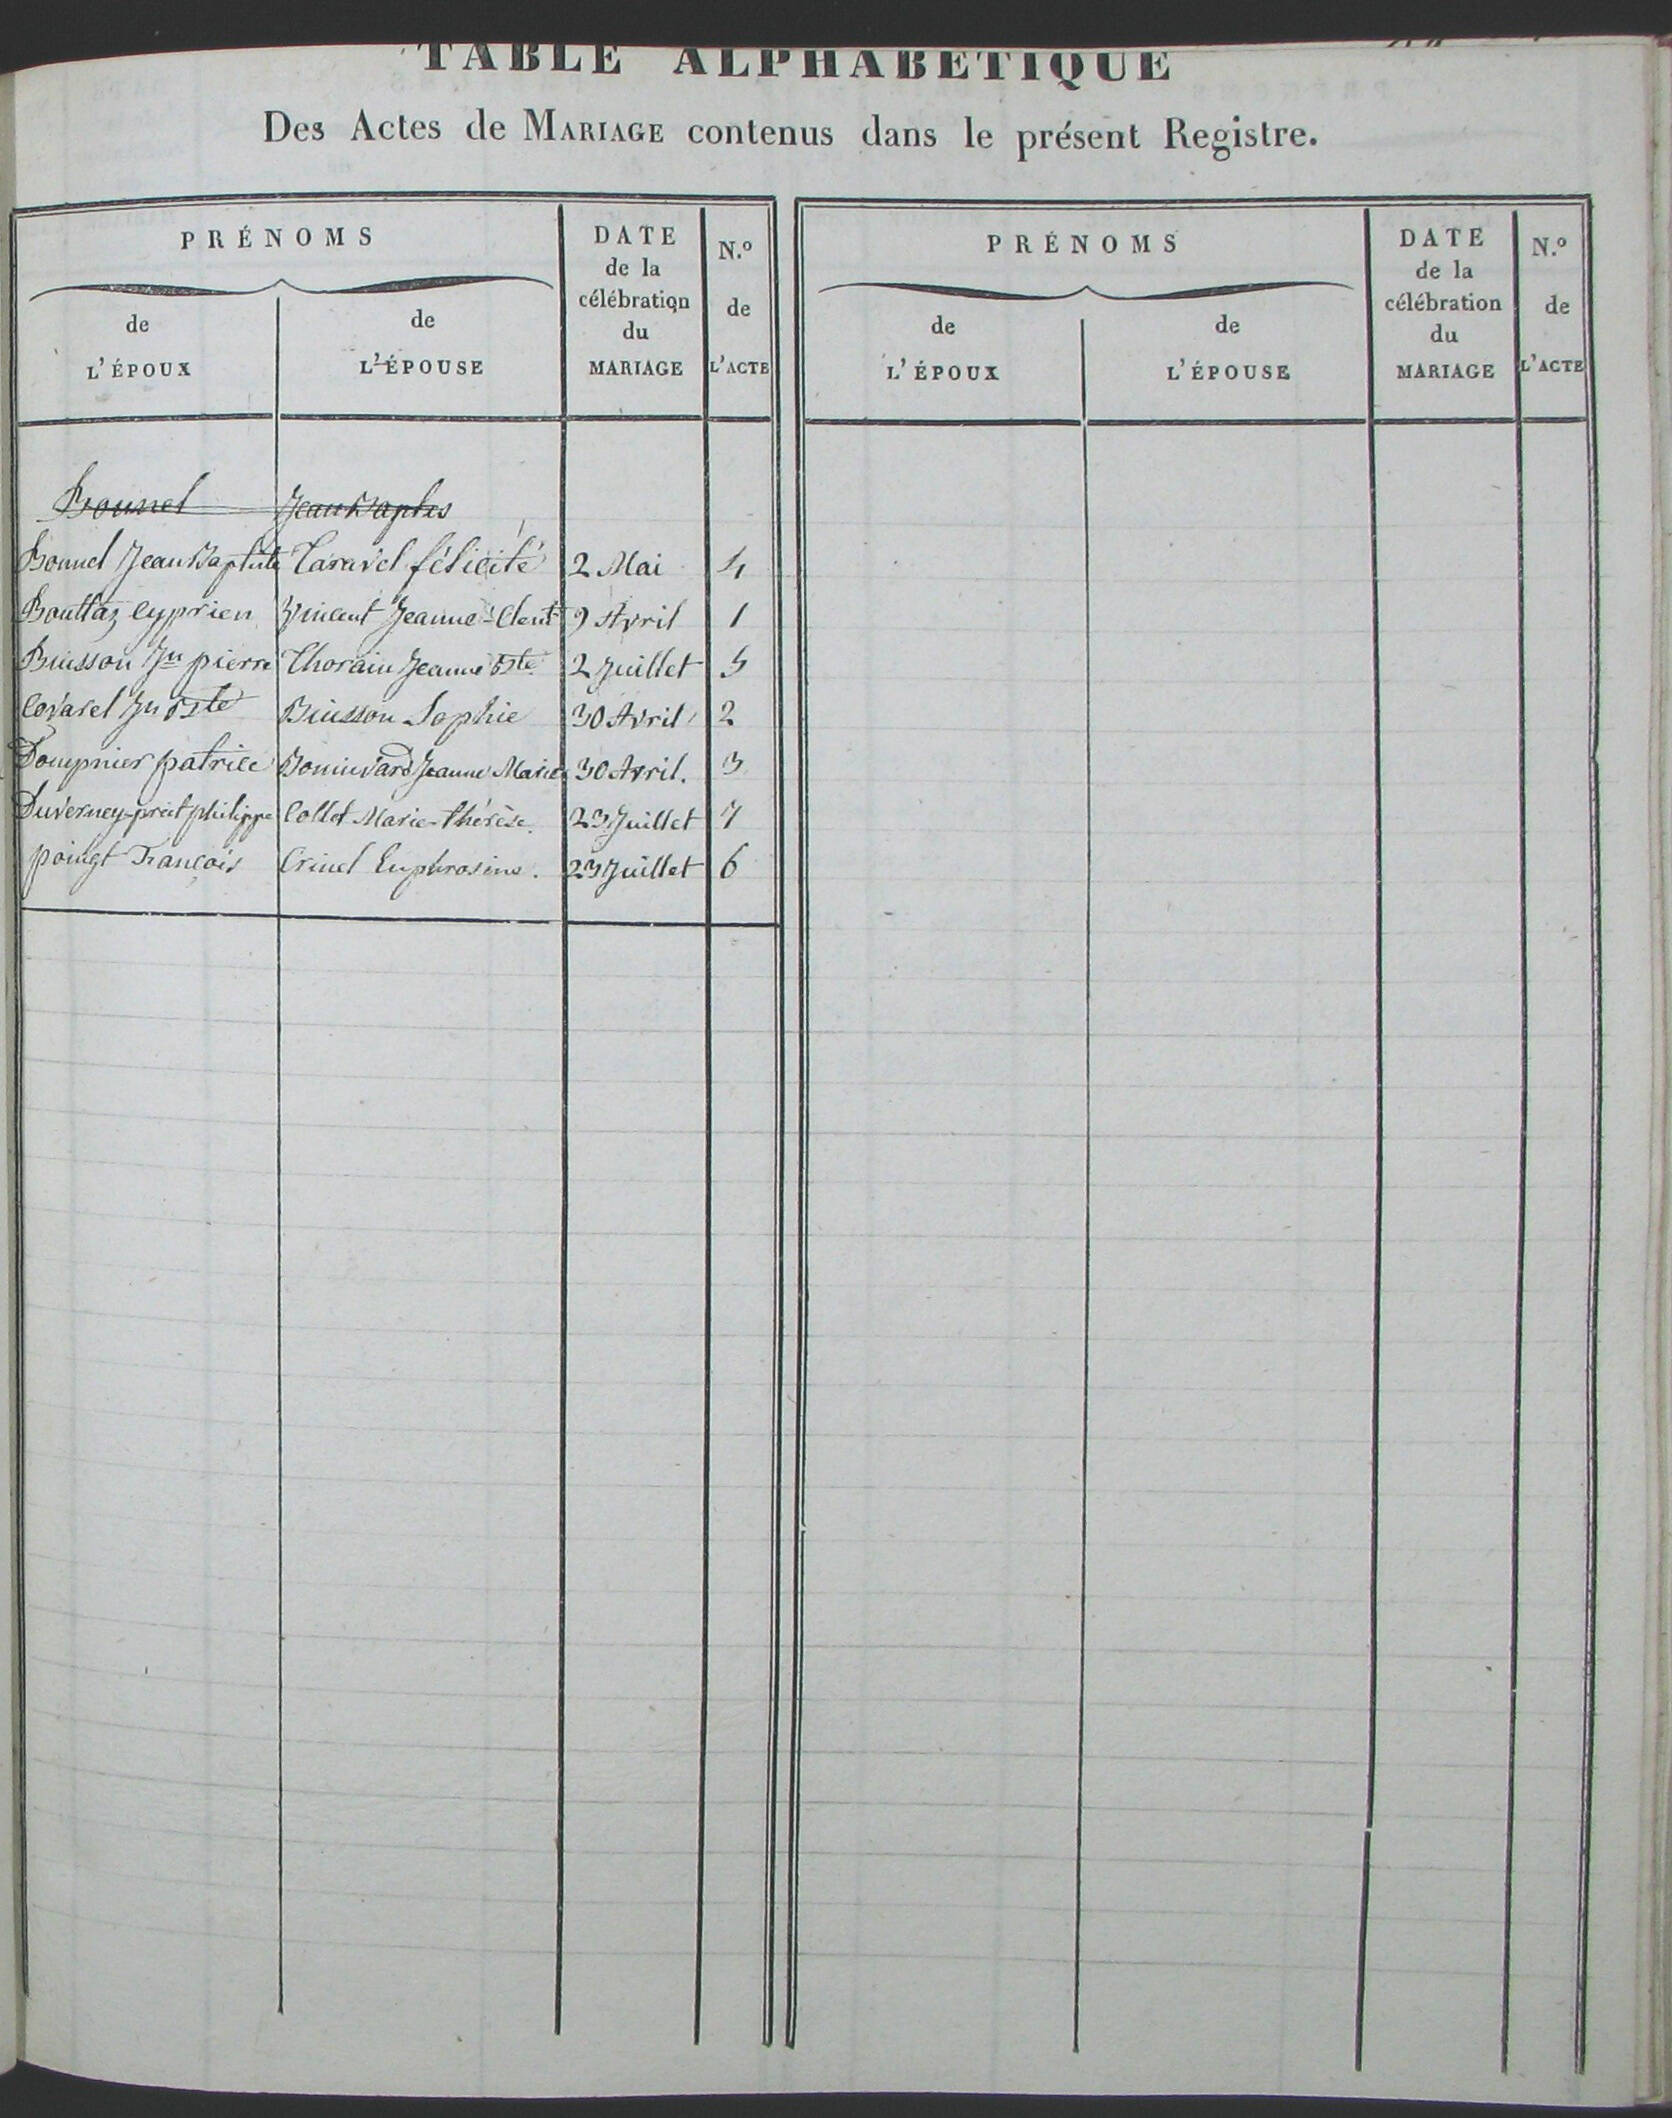 TABLE ALPHABÉTIQUE
Des Actes de MARIAGE contenus dans le présent Registre.
PRÉNOMS
de L'ÉPOUX
de L'ÉPOUSE
DATE de la célébration du MARIAGE
N.º de L'ACTE
PRÉNOMS
de L'ÉPOUX
de L'ÉPOUSE
DATE de la célébration du MARIAGE
N.º de L'ACTE
Bonnel Jean Baptis
Bonnel Jean Baptiste Taravel félicité 2 Mai 4
Bouttaz Cyprien Vincent Jeanne-Clent 9 Avril 1
Buisson Jn pierre Thorain Jeanne Bte 2 Juillet 5
Covarel Jn Bte Buisson Sophie 30 Avril 2
Doupnier patrice Bonnivard Jeanne Marie 30 Avril. 3
Duverney-pret philippe Collet Marie-thérèse. 23 Juillet 7
poingt François Crinel Euphrosine. 23 Juillet 6